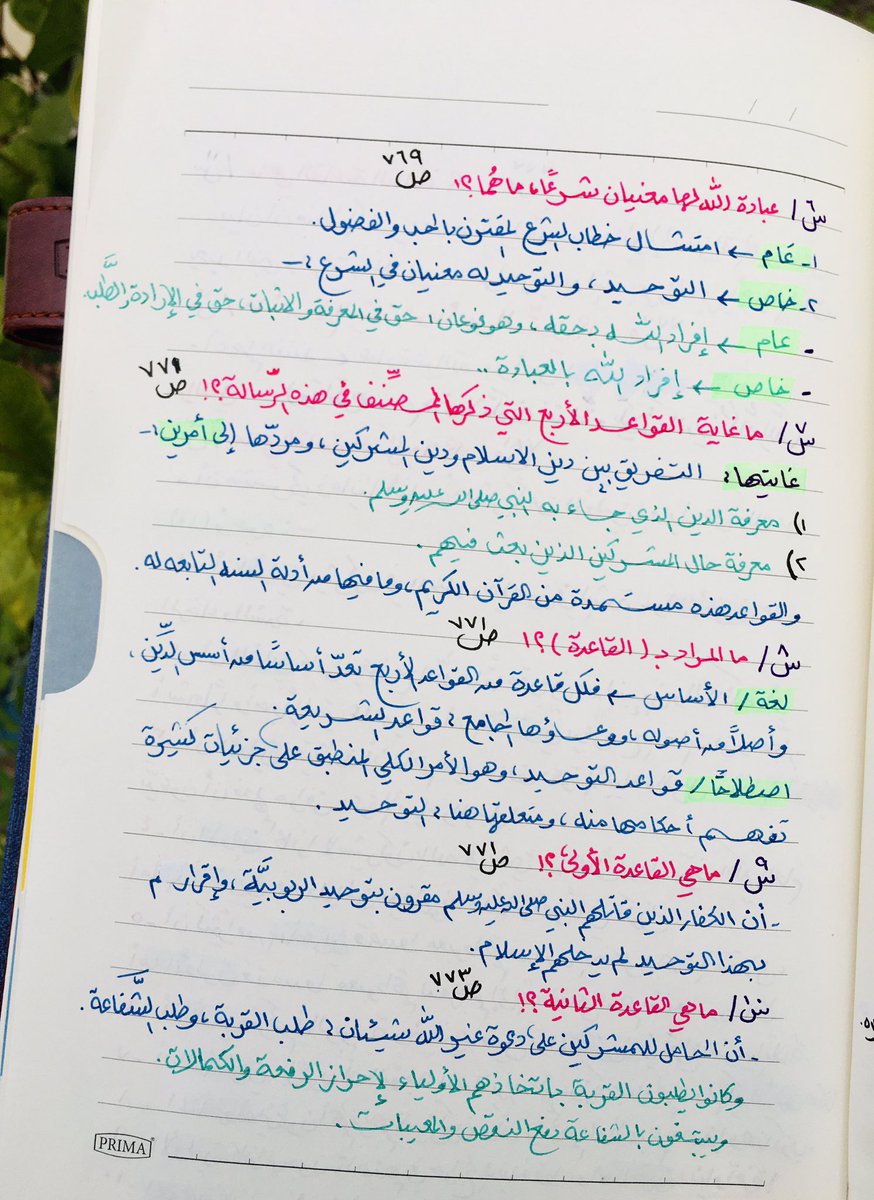 س٦/ عبادة الله لها معنيان شرعًا، ما هُما؟! ص٧٦٩
١- عَام ← امتثال خطاب الشرع المقترن بالحب والخضوع.
٢- خاص ← التوحيد، والتوحيد له معنيان في الشرع :-
- عام ← إفراد الله بحقه، وهو نوعان: حق في المعرفة والاثبات، حق في الإرادة والطَّلب.
- خاص ← إفراد الله بالعبادة..
س٧/ ما غاية القواعد الأربع التي ذكرها المصنِّف في هذه الرِّسالة؟! ص٧٧١
غايتها: التفريق بين دين الاسلام ودين المشركين، ومردّها إلى أمرين:-
١) معرفة الدين الذي جاء به النبي صلى الله عليه وسلم.
٢) معرفة حال المشركين الذين بعث فيهم.
والقواعد هذه مستمدة من القرآن الكريم، وما فيها من أدلة السنه التابعه له.
س٨/ ما المراد بـ (القاعدة)؟! ص٧٧١
لغة/ الأساس فكل قاعدة من القواعد الأربع تعدّ أساسًا من أسس الدِّين،
وأصلاً من أصوله، ووعاؤها الجامع: قواعد الشريعة.
اصطلاحًا/ قواعد التوحيد، وهو الأمر الكلي المنطبق على جزئيات كثيرة
تفهم أحكامها منه، ومتعلقها هنا: التوحيد.
س٩/ ماهي القاعدة الأولى؟! ص٧٧١
- أن الكفار الذين قاتلهم النبي صلى الله عليه وسلم مقرون بتوحيد الربوبيَّة، وإقرارهم
بهذا التوحيد لم يدخلهم الإسلام.
س١٠/ ماهي القاعدة الثانية؟! ص٧٧٣
- أن الحامل للمشركين على دعوة غير الله شيئان: طلب القربة، وطلب الشَّفاعة.
وكانوا يطلبون القربة باتخاذهم الأولياء لإحراز الرفعة والكمالات.
ويبتغون بالشفاعة دفع النقص والمعيبات.
PRIMA